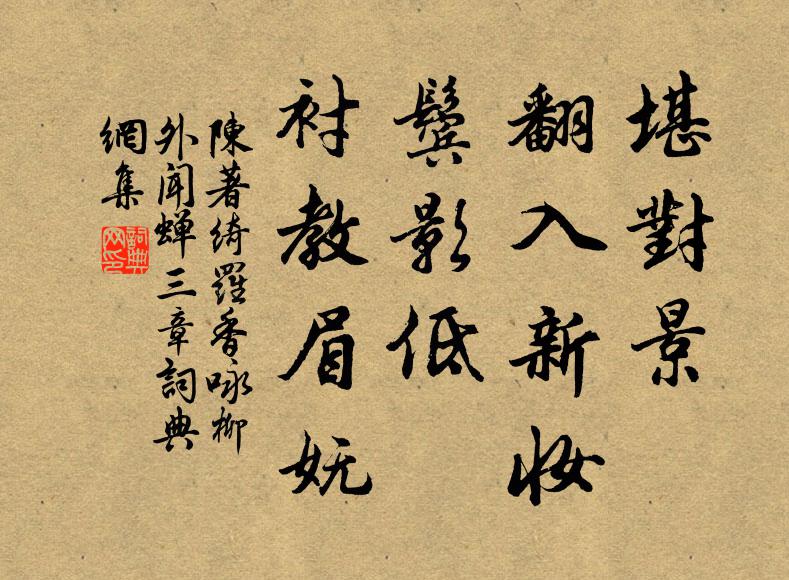 堪對景
翻入新妝
鬢影低
襯教眉妩
陳著綺羅香咏柳
外聞蝉三章詞典
網集
詞典
网印